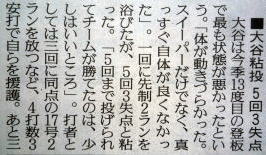 ■大谷粘投 5回3失点
大谷は今季13度目の登板
で最も状態が悪かったとい
う。「体が動きづらかった。
スイーパーだけでなく、真
っすぐ自体が良くなかっ
た」。一回に先制2ランを
浴びたが、5回3失点と粘
った。「5回まで投げられ
てチームが勝てたのは、少
しはいいところ」。打者と
しては三回に同点の17号2
ランを放つなど、4打数3
安打で自らを援護。あと三